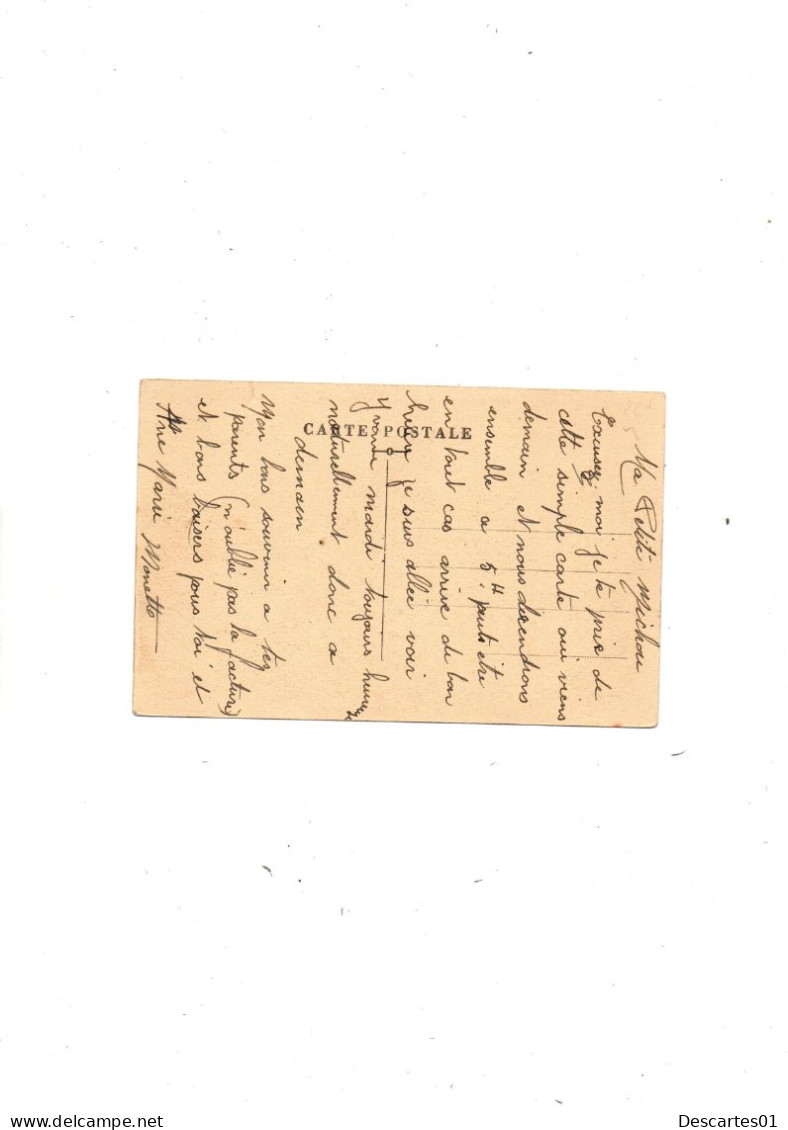 Ma Petite Michou
Excusez moi je te prie de
cette simple carte oui viens
demain et nous decendrons
ensemble a 5H peut être
en tout cas arrive de bon
heure je suis allée voir
Yvonne mardi toujours
naturellement donc a
demain
Mon bons souvenir a tes
parents (n'oublie pas la facture)
et bons baisers pour toi et
Marie Monette
CARTE POSTALE
Descartes01